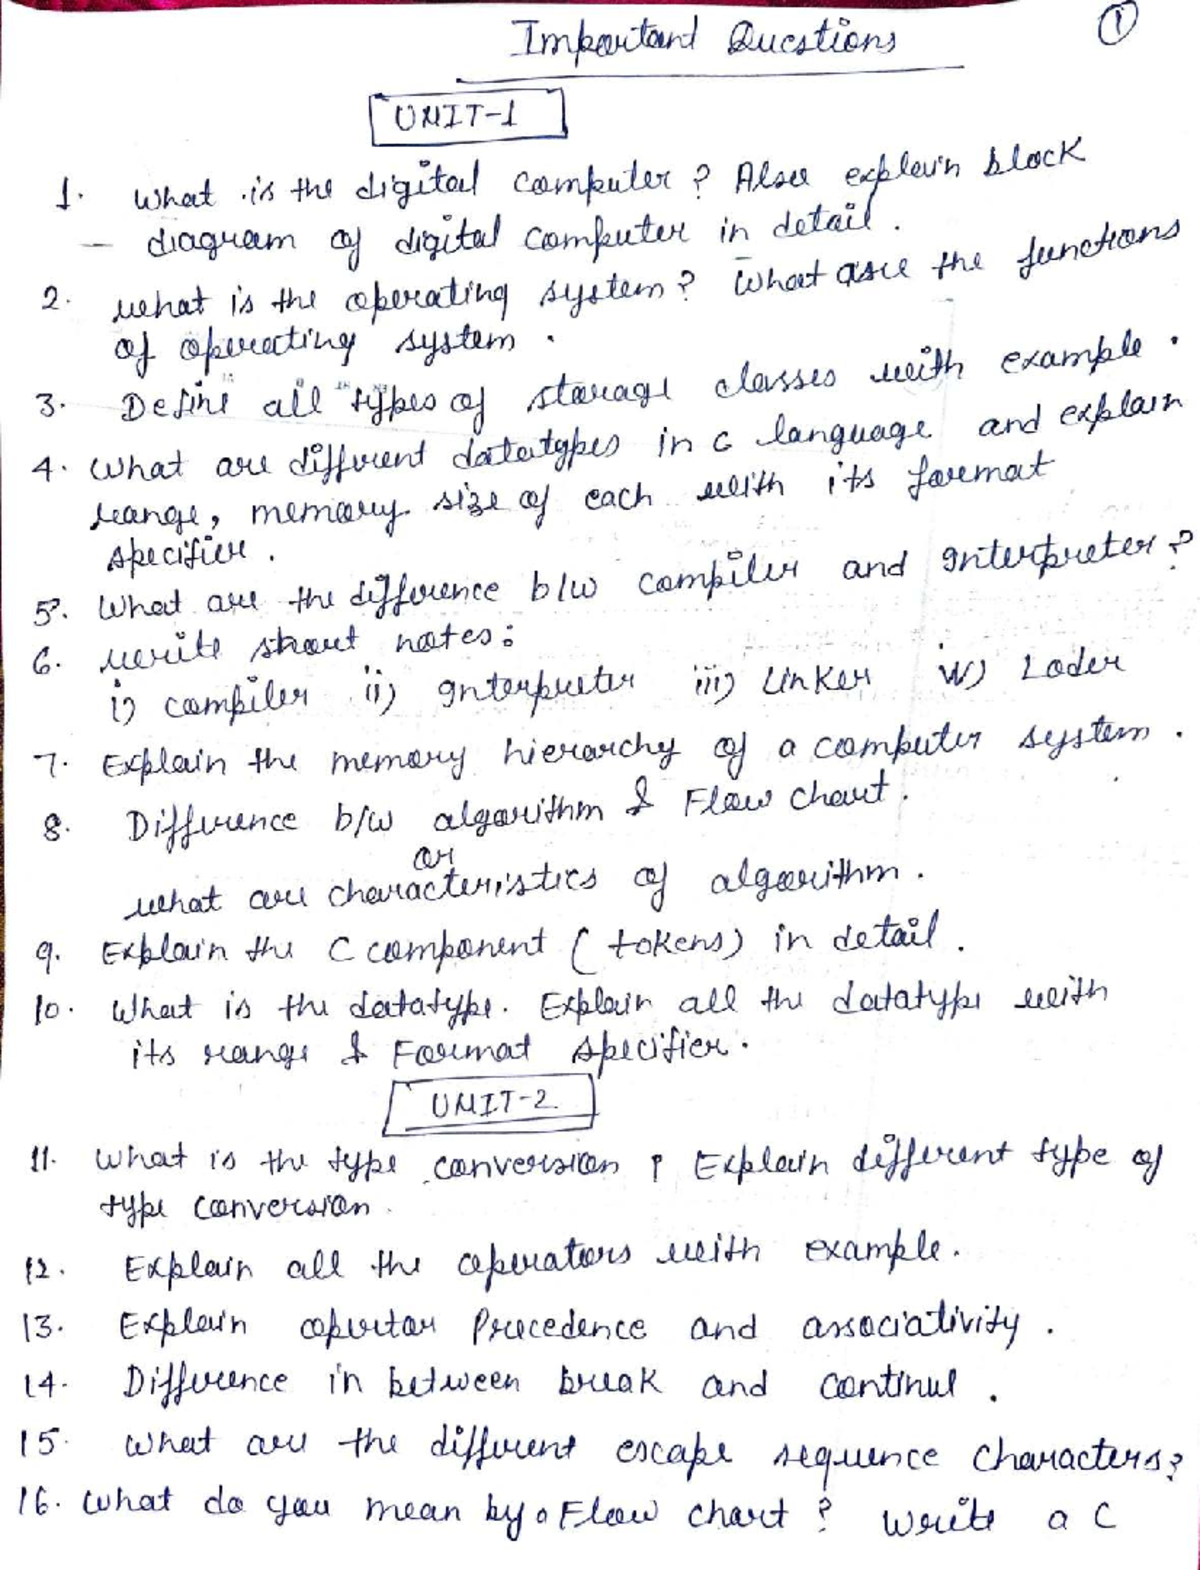 Important Questions
①
UNIT-1
1. What is the digital computer? Also explain block
– diagram of digital computer in detail.
2. what is the operating system? What are the functions
of operating system.
3. Define all types of storage classes with example.
4. What are different datatypes in c language and explain
range, memory size of each with its format
specifier.
5. What are the difference b/w compiler and Interpreter?
6. write short notes:
i) compiler ii) Interpreter iii) Linker iv) Loder
7. Explain the memory hierarchy of a computer system.
8. Difference b/w algorithm & Flow chart.
or
what are characteristics of algorithm.
9. Explain the C component (tokens) in detail.
10. What is the datatype. Explain all the datatype with
its range & Format specifier.
UNIT-2
11. What is the type conversion ? Explain different type of
type conversion.
12. Explain all the operators with example.
13. Explain opertor Precedence and associativity.
14. Difference in between break and continue.
15. What are the different escape sequence characters?
16. What do you mean by a Flow chart? Write a C